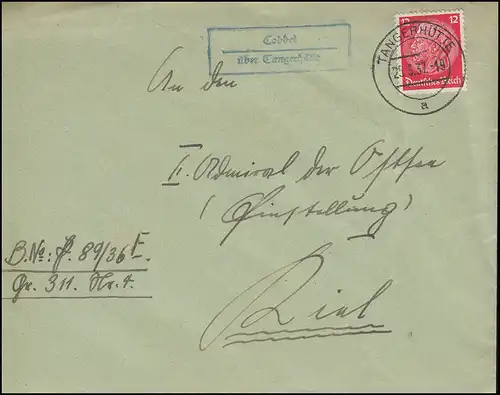 Cobbel
über Tangerhütte
12 12
Deutsches Reich
TANGERHÜTTE
a
An den
II. Admiral der Ostsee
(Einstellung)
Kiel
B.No: P. 89/36 E.
Gr. 311. Nr. 7.